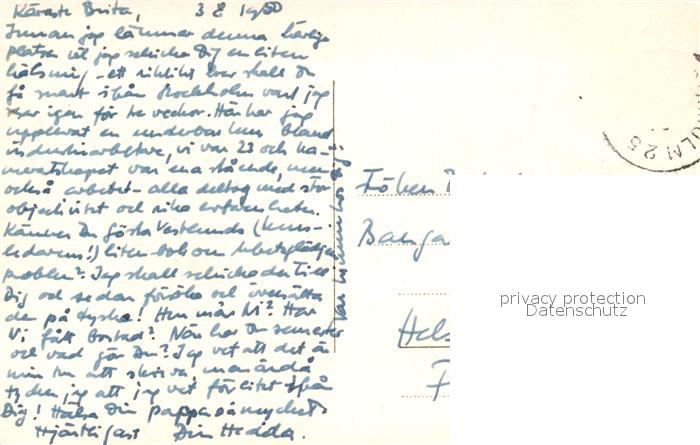 Käraste Brita, 3 8 1950
Innan jag lämnar denna härliga
platsen vill jag schicka Dig en liten
hälsning - ett riktigt brev skall Du
få snart ifrån Stockholm vart jag
reser igen för tre veckor. Här har jag
upplevat en underbar kurs bland
industriarbetare, vi var 23 och ka-
meratskapet var enastående, men
också arbetet - alla deltog med stor
objektivitet och rika erfarenheter.
Känner Du Gösta Vestlunds (kurs-
ledarens!) liten bok om Arbetsglädjens
problem? Jag skall schicka den till
Dig och sedan försöka och översätta
den på tyska! Hur mår Ni? Har
Ni fått bostad? När har Du semester
och vad gör Du? Jag vet att det är
min tur att skriva, men ändå
tycker jag att jag vet för litet ifrån
Dig! Hälsa Din pappa så mycket
Hjärtligast Din Hedda.
Fröken
Banga
Hels
F
HOLM 25
privacy protection
Datenschutz